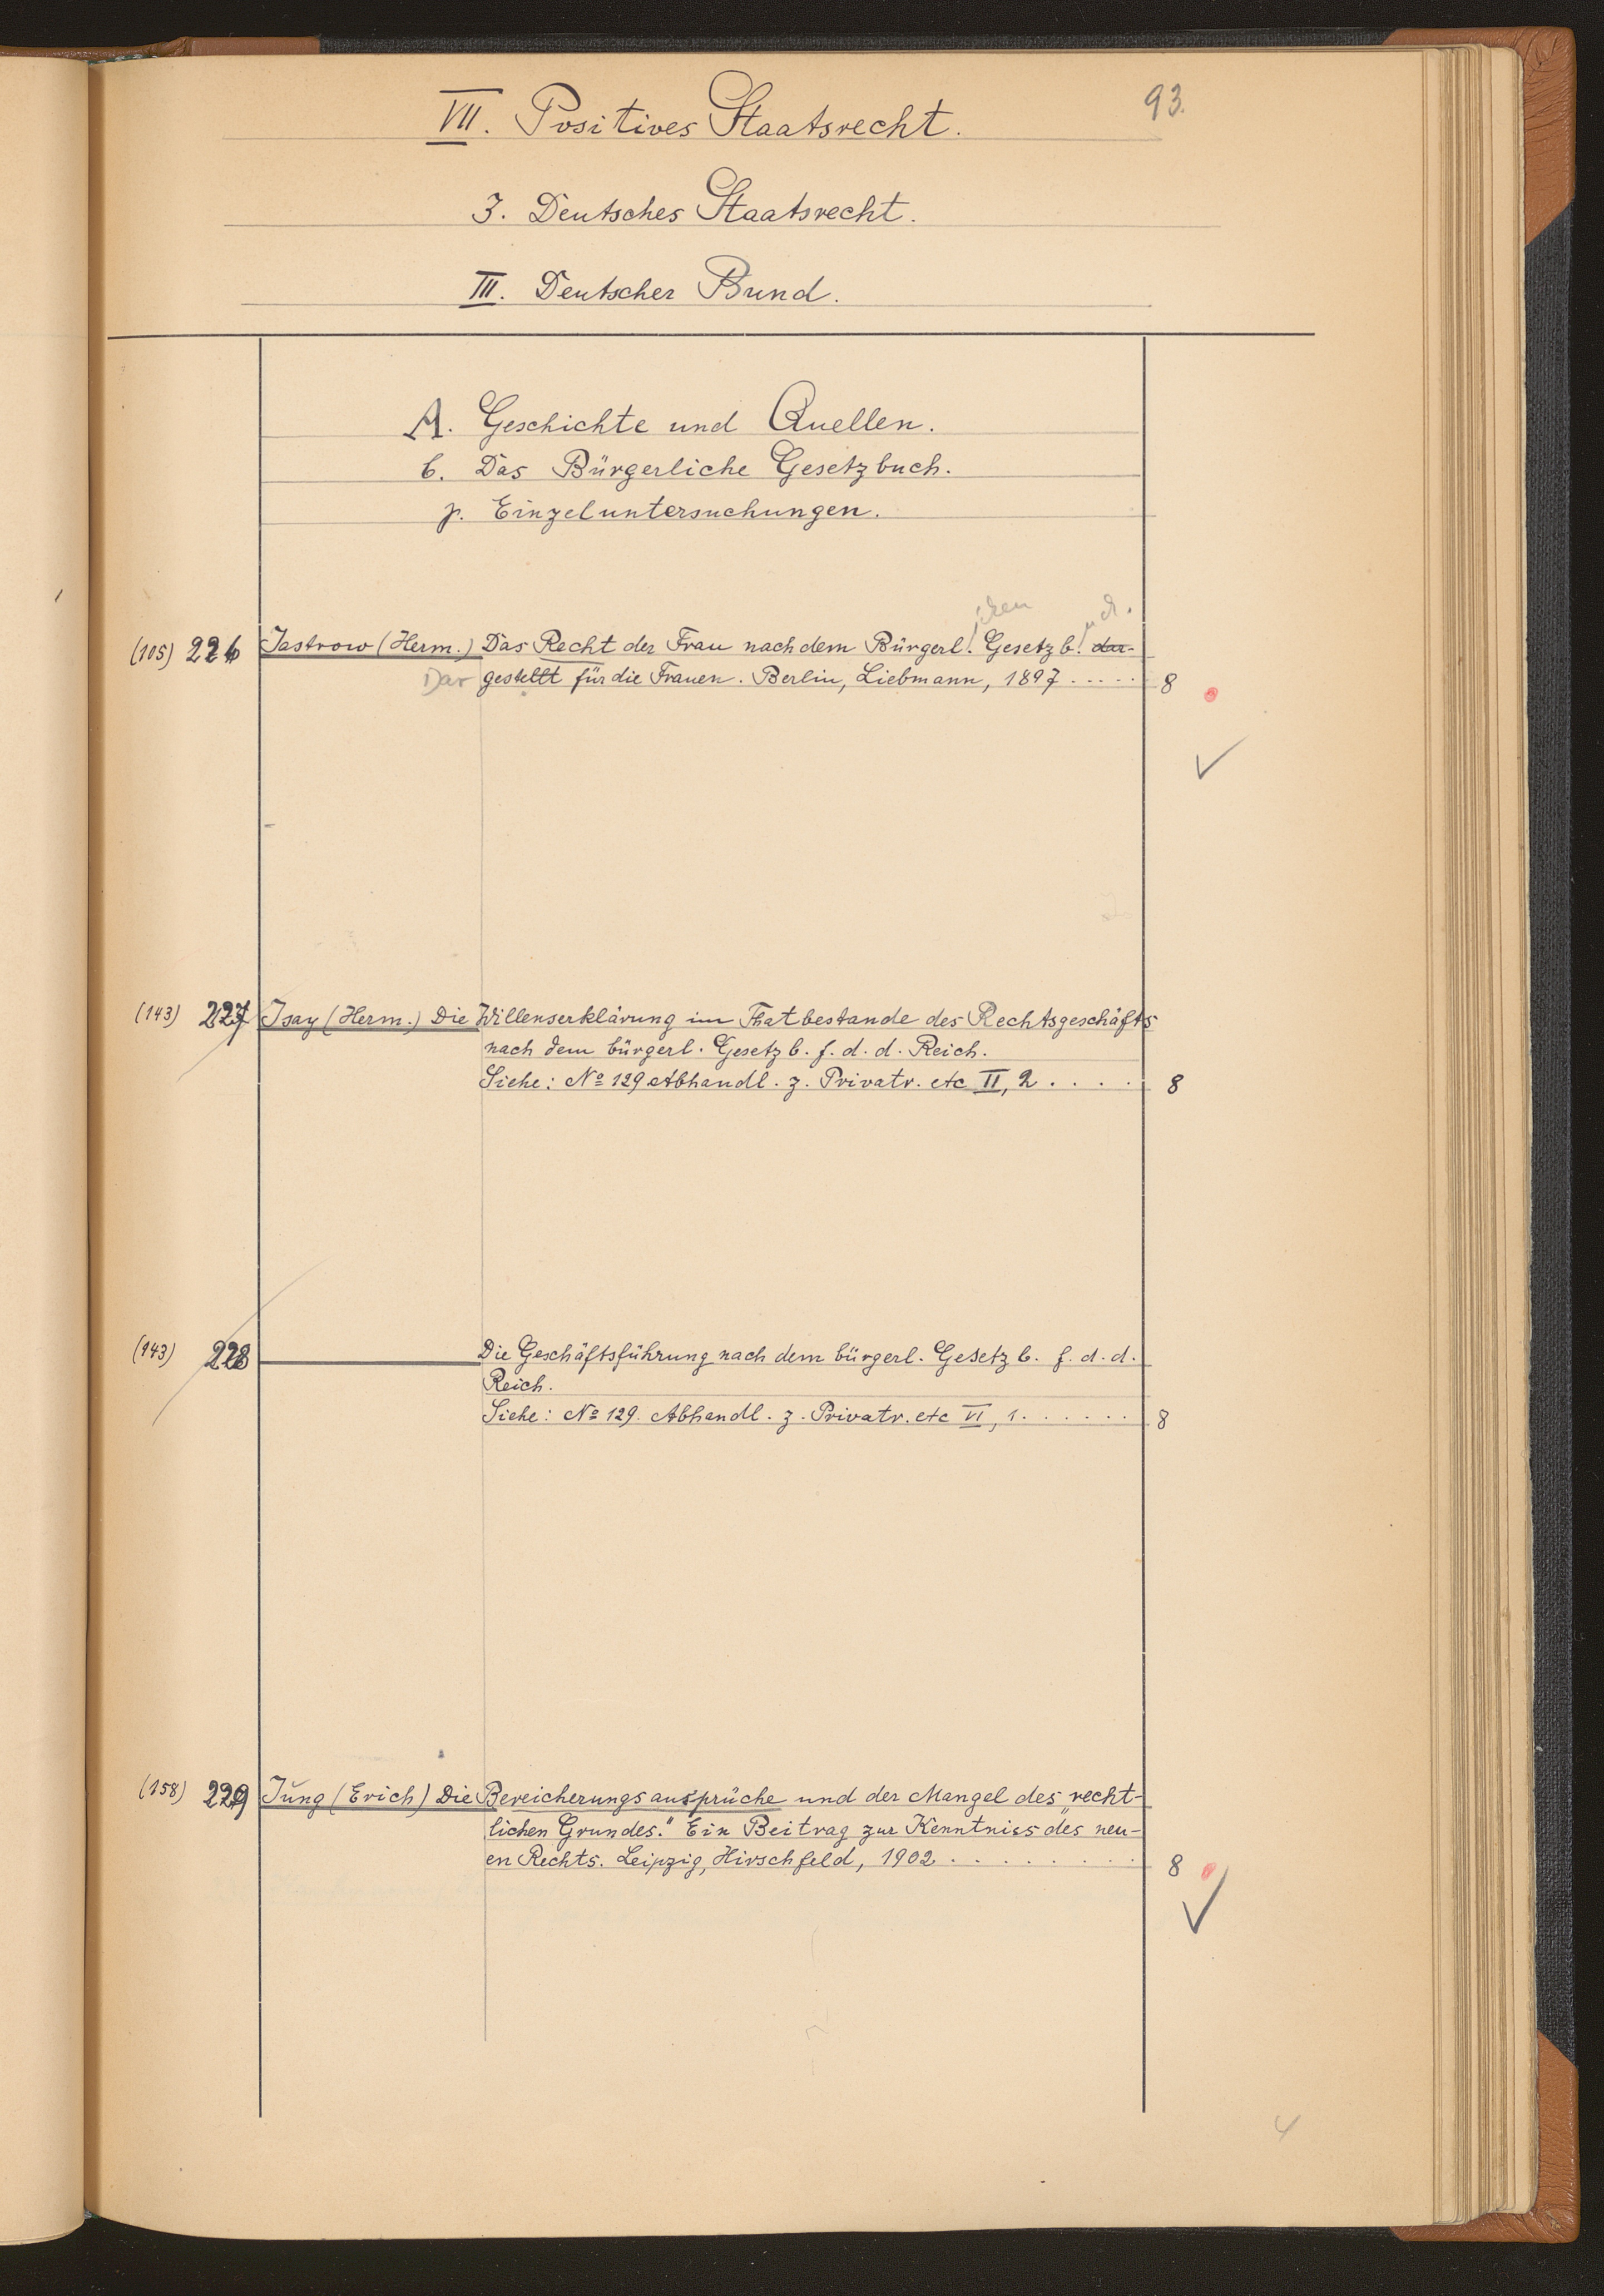 93.
VII. Positives Staatsrecht.
3. Deutsches Staatsrecht.
III. Deutscher Bund.
A. Geschichte und Quellen.
b. Das Bürgerliche Gesetzbuch.
γ. Einzeluntersuchungen.
ichen uch.
(105) 226 Jastrow (Herm.) Das Recht der Frau nach dem Bürgerl. Gesetzb. dar-
Dar gestellt für die Frauen. Berlin, Liebmann, 1897 ..... 8
(143) 227 Isay (Herm.) Die Willenserklärung im Thatbestande des Rechtsgeschäfts
nach dem bürgerl. Gesetzb. f. d. d. Reich.
Siehe: No 129 Abhandl. z. Privatr. etc II, 2 .... 8
(143) 228 Die Geschäftsführung nach dem bürgerl. Gesetzb. f. d. d.
Reich.
Siehe: No 129. Abhandl. z. Privatr. etc VI, 1 ...... 8
(158) 229 Jung (Erich) Die Bereicherungsansprüche und der Mangel des „recht-
lichen Grundes." Ein Beitrag zur Kenntniss des neu-
en Rechts. Leipzig, Hirschfeld, 1902 ........ 8